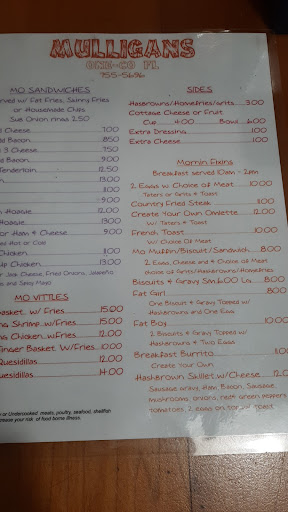 MULLIGANS
ONE-CO FL
755-5696
MO SANDWICHES
Served w/ Fat Fries, Skinny Fries
or Housemade Chips
Sub Onion rings 2.50
Cheese 7.00
Bacon 8.50
3 Cheese 7.50
Bacon 9.00
Tenderloin 12.50
13.00
8.00
9.00
Hoagie 12.00
Hoagie 13.00
or Ham & Cheese 9.00
Hot or Cold
Chicken 8.00
8.00
Chicken 13.00
Jack Cheese, Fried Onions, Jalapeño
and Spicy Mayo
MO VITTLES
Basket w/ Fries 15.00
Shrimp w/Fries 15.00
Chicken w/Fries 12.00
Finger Basket W/Fries 10.00
Quesidillas 12.00
Quesidillas 14.00
or Undercooked meats, poultry, seafood, shellfish
increase your risk of food borne illness.
SIDES
Hasbrowns/Homefries/grits 3.00
Cottage Cheese or Fruit
Cup 4.00 Bowl 6.00
Extra Dressing 1.00
Extra Cheese 1.00
Mornin Fixins
Breakfast served 10am - 2pm
2 Eggs w Choice of Meat 10.00
Taters or Grits & Toast
Country Fried Steak 8.00
Create Your Own Omlette 12.00
w/ Taters & Toast
French Toast 10.00
w/ Choice of Meat
Mo Muffin/Biscuit/Sandwich 8.00
2 Eggs, Cheese and a choice of meat
choice of Grits/Hashbrowns/Homefries
Biscuits & Gravy Sm 6.00 Lg 8.00
Fat Girl 8.00
One Biscuit & Gravy Topped w/
Hashbrowns and One Egg
Fat Boy 10.00
2 Biscuits & Gravy Topped w/
Hashbrowns & Two Eggs
Breakfast Burrito 11.00
Create Your Own
Hashbrown Skillet w/Cheese 12.00
Sausage gravy, Ham, Bacon, Sausage,
mushrooms, onions, red& green peppers
tomatoes, 2 eggs on top w/ toast